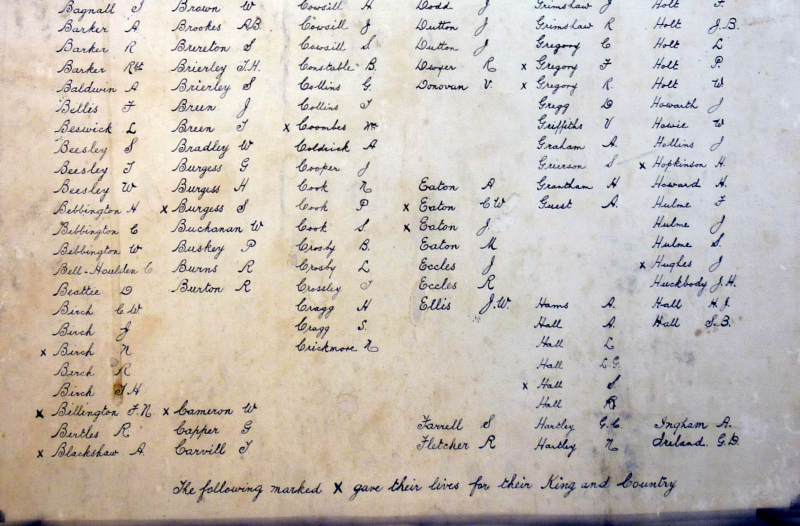 Bagnall J
Barker A
Barker R
Barker Rt
Baldwin A
Bellis F
Beswick L
Beesley S
Beesley T
Beesley W
Bebbington H
Bebbington C
Bebbington W
Bell-Houlden C
Beattie D
Birch C.W
Birch J
x Birch N
Birch R
Birch T.H
x Billington F.N
Birtles R
x Blackshaw A.
Brown W
Brookes A.B.
Brereton S
Brierley T.H.
Brierley S
Breen J
Breen T
Bradley W
Burgess G
Burgess H
x Burgess S
Buchanan W
Buskey P
Burns R
Burton R
x Cameron W
Capper G
Carvill T
Cowsill H
Cowsill J
Cowsill S
Constable B.
Collins G.
Collins T
x Coombes Wm
Coldrick A
Cooper J
Cook N
Cook P
Cook S
Crosby B.
Crosby L
Crossley T
Cragg H
Cragg S.
Crickmore N
Dodd J
Dutton J
Dutton J
Dwyer R
Donovan V.
Eaton A
x Eaton C.W
x Eaton J.
Eaton M
Eccles J
Eccles R
Ellis J.W.
Farrell S
Fletcher R
Grimshaw J
Grimshaw R
Gregory C
x Gregory F
x Gregory R.
Gregg D
Griffiths V
Graham A.
Grierson S
Grantham H
Guest A.
Hams A.
Hall A.
Hall L
Hall L.G.
x Hall S
Hall R
Hartley G.C.
Hartley N
Holt F.
Holt J.B.
Holt L
Holt P.
Holt W
Howarth J
Howie W
Hollins J
x Hopkinson H.
Howard H.
Hulme F
Hulme J
Hulme S.
x Hughes J
Huckbody J.H.
Hall H.J.
Hall S.B.
Ingham A.
Ireland. G.B.
The following marked X gave their lives for their King and Country